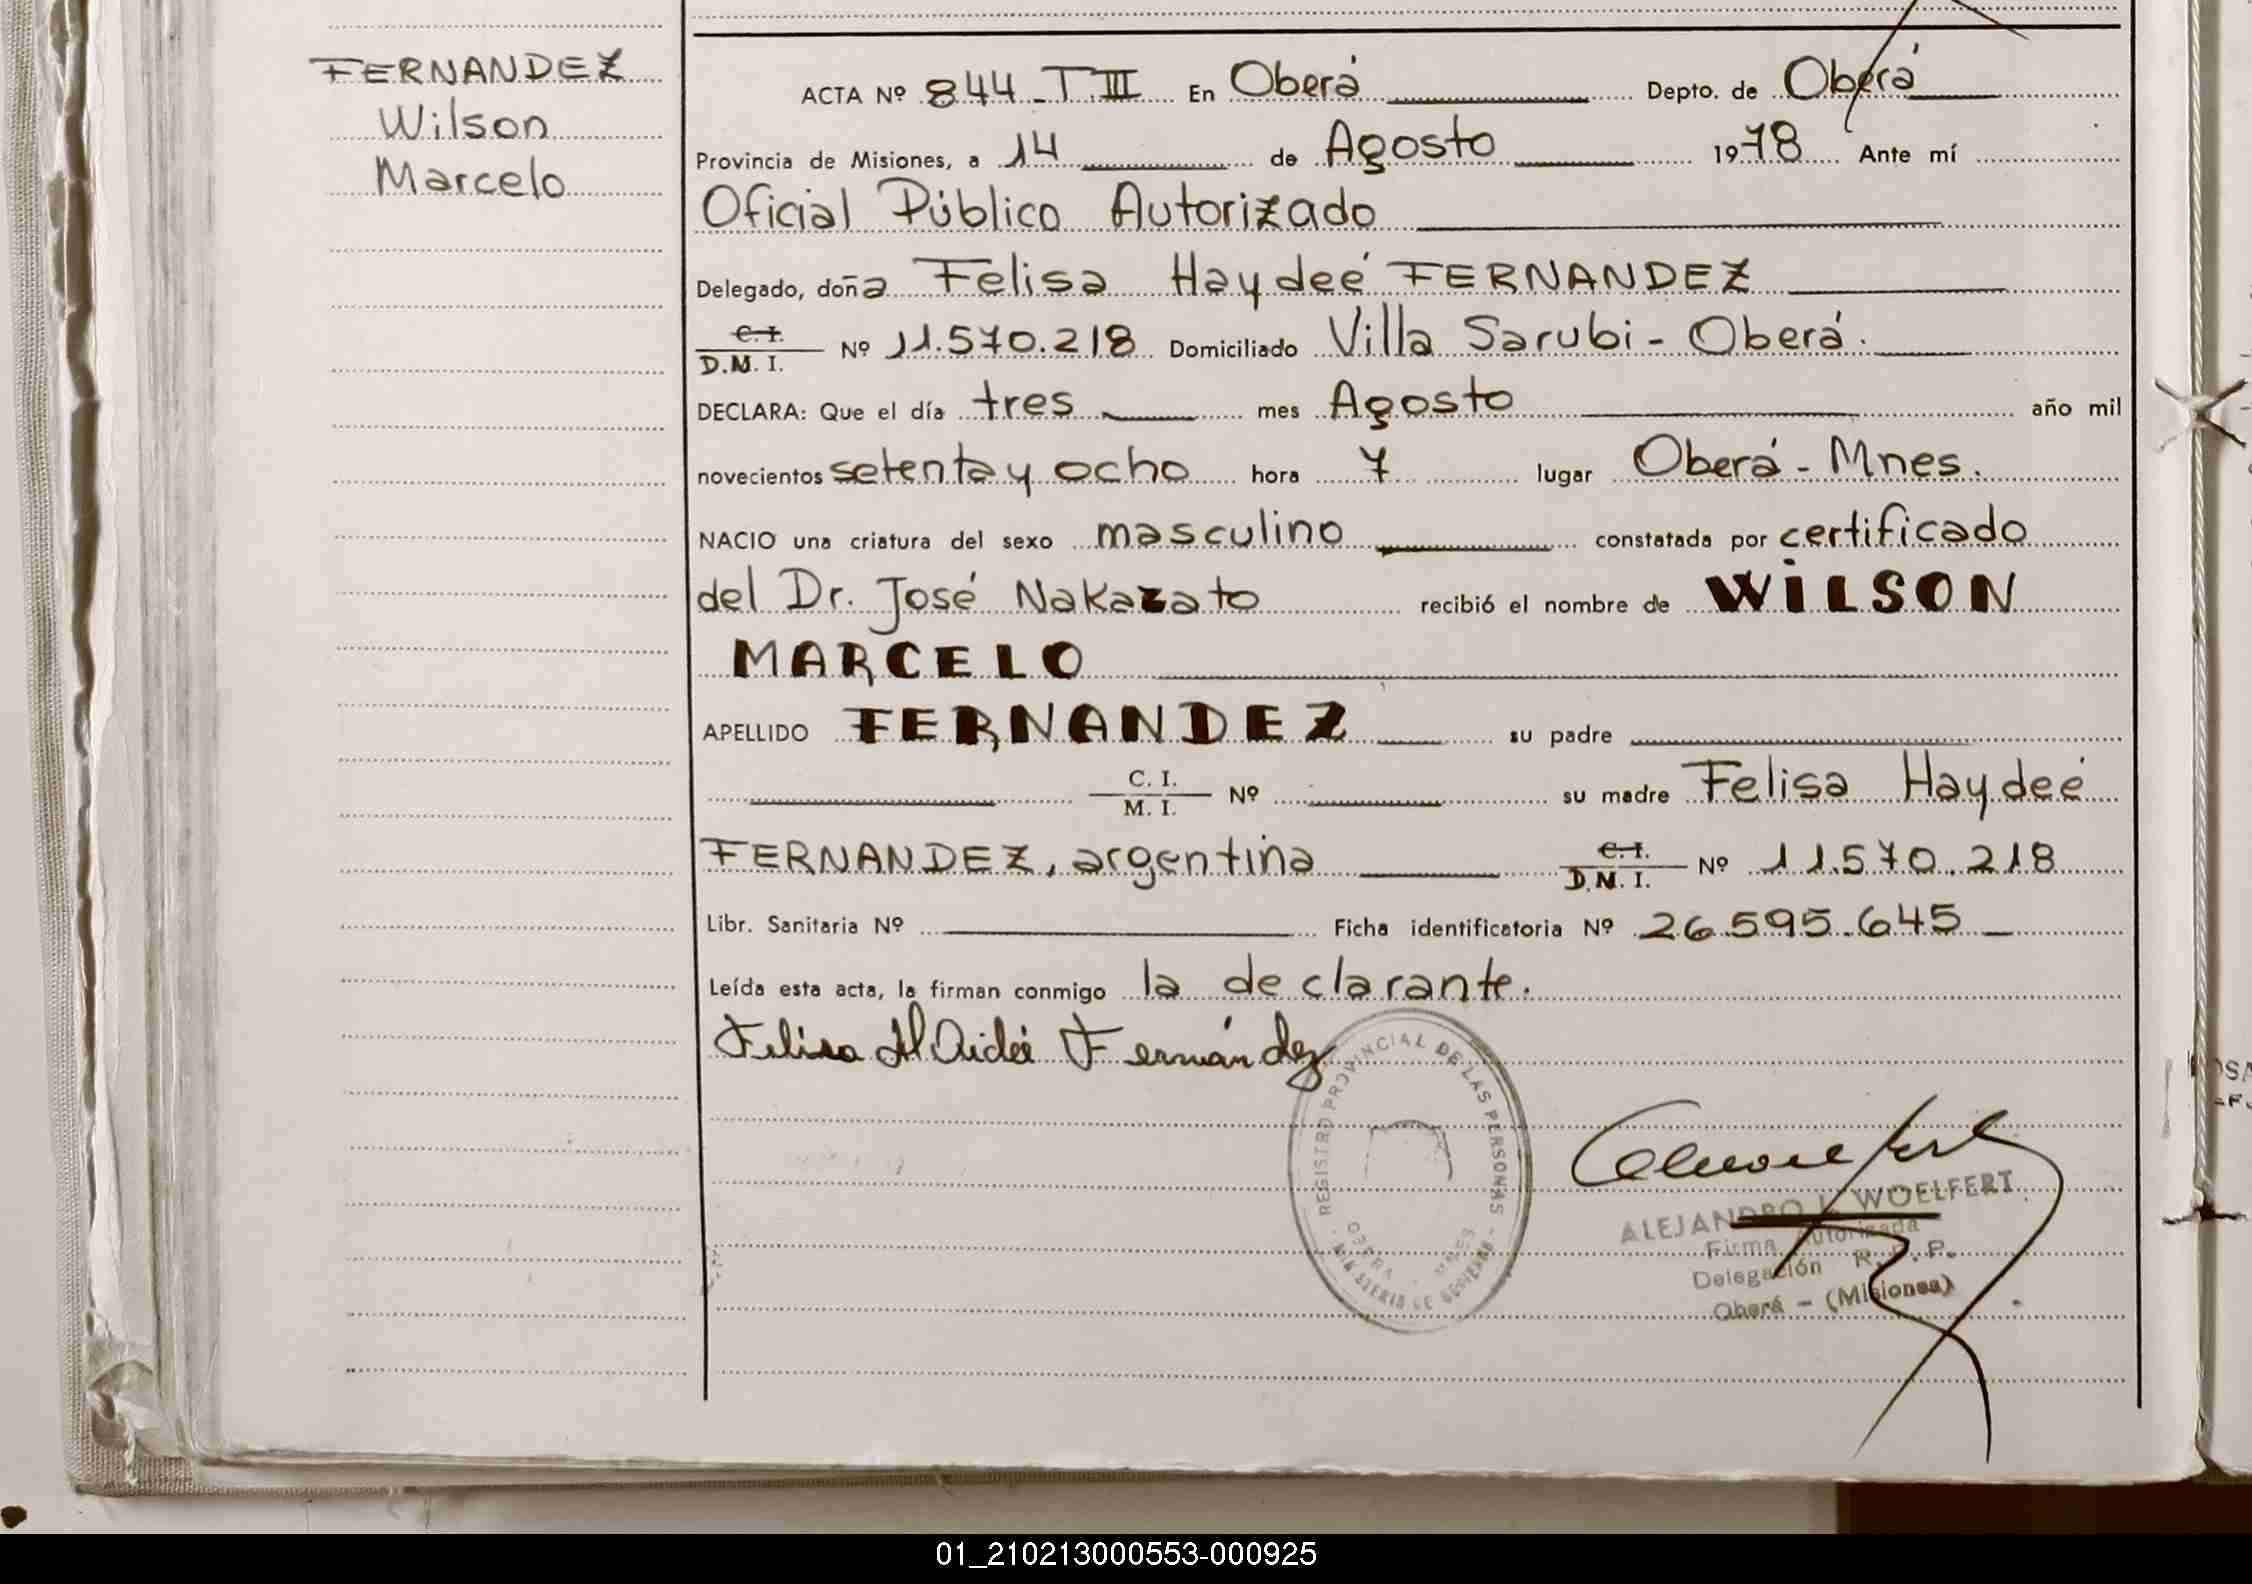 FERNANDEZ
Wilson
Marcelo
ACTA Nº 844 - T III En Oberá Depto. de Oberá
Provincia de Misiones, a 14 de Agosto 1978 Ante mí
Oficial Público Autorizado
Delegado, doña Felisa Haydeé FERNANDEZ
C. I.
D.N. I. Nº 11.570.218 Domiciliado Villa Sarubi - Oberá.
DECLARA: Que el día tres mes Agosto año mil
novecientos setenta y ocho hora 7 lugar Oberá - Mnes.
NACIO una criatura del sexo masculino constatada por certificado
del Dr. José Nakazato recibió el nombre de WILSON
MARCELO
APELLIDO FERNANDEZ su padre
C. I.
M. I. Nº su madre Felisa Haydeé
FERNANDEZ, argentina C. I.
D.N. I. Nº 11.570.218
Libr. Sanitaria Nº Ficha identificatoria Nº 26.595.645
Leída esta acta, la firman conmigo la declarante.
Felisa HAidée Fernández
REGISTRO PROVINCIAL DE LAS PERSONAS
OBERA - MNES
MINISTERIO DE GOBIERNO
ALEJANDRO L. WOELFERT
Firma Autorizada
Delegación R. P. P.
Oberá - (Misiones)
01_210213000553-000925